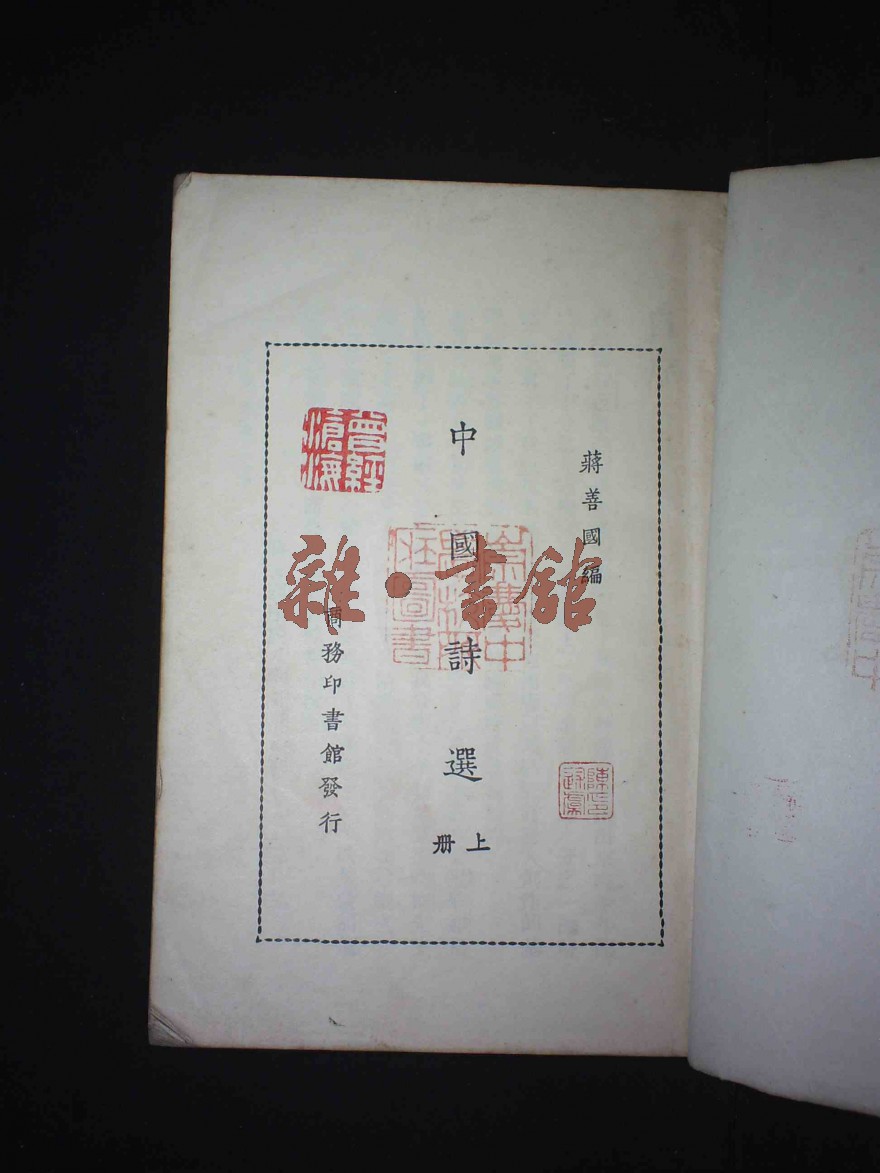 蔣善國編
中國詩選
上冊
商務印書館發行
曾經滄海
雜·書館